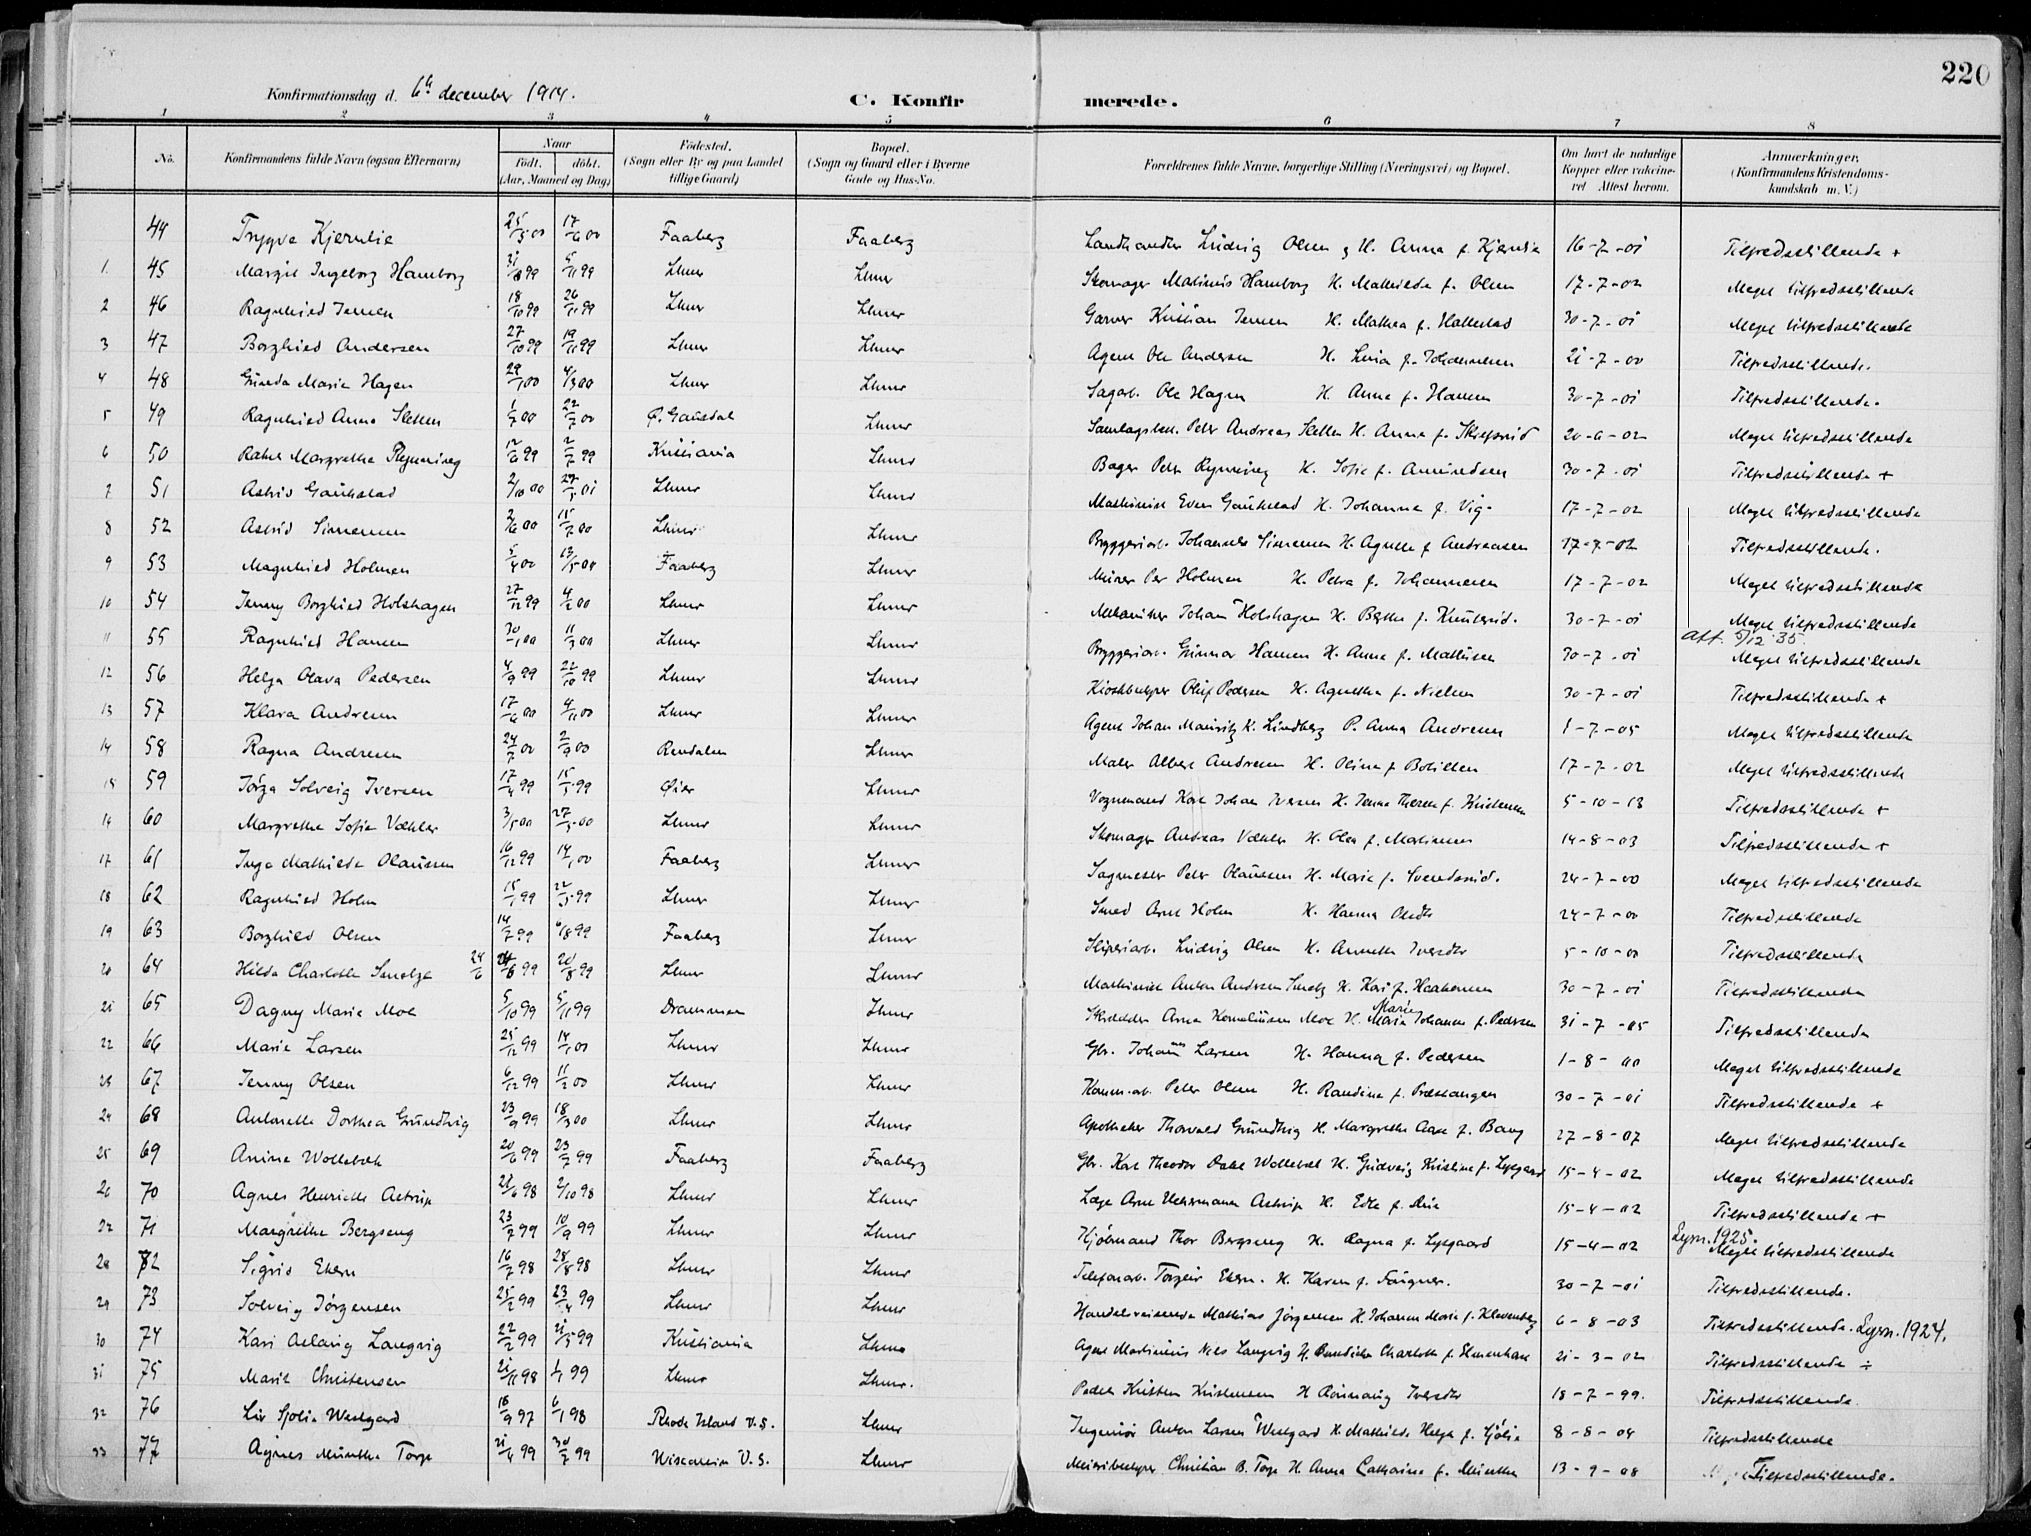 220
Konfirmationsdag d. 6te december 1914. C. Konfirmerede.
1 2 3 4 5 6 7 8
No. Konfirmandens fulde Navn (ogsaa Efternavn) Naar født. døbt. (Aar, Maaned og Dag) Fødested. (Sogn eller By og paa Landet tillige Gaard) Bopæl. (Sogn og Gaard eller i Byerne Gade og Hus-No. Forældrenes fulde Navne, borgerlige Stilling (Næringsvei) og Bopæl. Om havt de naturlige Kopper eller vakcineret Attest herom. Anmærkninger, (Konfirmandens Kristendomskundskab m. V.)
44 Trygve Kjernlie 25/5 00 17/6 00 Faaberg Faaberg Landhandler Ludvig Olsen og H. Anna f. Kjernlie 16-7-01 Tilfredsstillende +
1. 45 Margit Ingeborg Hamborg 99 5/11 99 Lhmr Lhmr Skomager Matinius Hamborg H. Mathilde f. Olsen 17-7-02 Meget tilfredsstillende
2 46 Ragnhild Jensen 18/10 99 26/11 99 Lhmr Lhmr Garver Kristian Jensen H. Mathea f. Hallestad 30-7-01 Meget tilfredsstillende
3 47 Borghild Andersen 27/10 99 19/11 99 Lhmr Lhmr Agent Ole Andersen H. Lina f. Johannesen 21-7-00 Tilfredsstillende.
4 48 Gunda Marie Hagen 29/1 00 4/3 00 Lhmr Lhmr Sagarb. Ole Hagen H. Anne f. Hansen 30-7-01 Tilfredsstillende.
5 49 Ragnhild Anna Sletten 1/7 00 22/7 00 Ø. Gausdal Lhmr Samlagsbest. Peter Andreas Sletten H. Anna f. 20-6-02 Meget tilfredsstillende
6 50 Rakel Margrethe Rynning 12/6 99 2/7 99 Kristiania Lhmr Bager Peter Rynning H. Sofie f. Amundsen 30-7-01 Tilfredsstillende +
7 51 Astrid Gaukstad 2/10 00 01 Lhmr Lhmr Maskinist Even Gaukstad H. Johanna f. Vig. 17-7-02 Meget tilfredsstillende
8 52 Astrid Simensen 2/6 00 15/7 00 Lhmr Lhmr Bryggeriarb. Johannes Simensen H. Agnethe f. Andreassen 17-7-02 Tilfredsstillende.
9 53 Magnhild Holmen 5/4 00 13/5 00 Faaberg Lhmr Murer Per Holmen H. Petra f. Johannesen 17-7-02 Meget tilfredsstillende
10 54 Jenny Borghild Holshagen 27/12 99 4/2 00 Lhmr Lhmr Mekaniker Johan Holshagen H. Berthe f. Knutsrud. 30-7-01 Meget tilfredsstillende
11 55 Ragnhild Hansen 30/1 00 11/3 00 Lhmr Lhmr Bryggeriarb. Gunnar Hansen H. Anna f. Mathisen 30-7-01 Att. 5/12 35 Meget tilfredsstillende
12 56 Helga Olava Pedersen 4/9 99 22/10 99 Lhmr Lhmr Oluf Pedersen H. Agnethe f. Nielsen 30-7-01 Tilfredsstillende +
13 57 Klara Andresen 17/6 00 4/11 00 Lhmr Lhmr Agent Johan Mauritz K. Lindberg P. Anna Andresen 1-7-05 Meget tilfredsstillende
14 58 Ragna Andresen 24/7 00 2/9 00 Rendalen Lhmr Maler Albert Andresen H. Olina f. Botillen 17-7-02 Meget tilfredsstillende
15 59 Jørga Solveig Iversen 17/4 99 15/5 99 Øier Lhmr Vognmand Karl Johan Iversen H. Jenna Therese f. Kristensen 5-10-13 Tilfredsstillende +
16 60 Margrethe Sofie Vækler 3/5 00 27/5 00 Lhmr Lhmr Skomager Andreas Vækler H. Olea f. Martinsen 14-8-03 Tilfredsstillende +
17 61 Inga Mathilde Olaussen 16/12 99 14/1 00 Faaberg Lhmr Sagmester Peter Olaussen H. Marie f. Svendsrud. 24-7-00 Meget tilfredsstillende
18 62 Ragnhild Holm 15/1 99 22/5 99 Lhmr Lhmr Smed Arne Holm H. Hanna Olsdtr 24-7-00 Tilfredsstillende
19 63 Borghild Olsen 14/7 99 6/8 99 Faaberg Lhmr Sliperiarb. Ludvig Olsen H. Annette Iversdtr 5-10-00 Tilfredsstillende
20 64 Hilda Charlotte Smelz 24/6 24/6 99 20/8 99 Lhmr Lhmr Maskinist Anton Andersen Smelz H. Kari f. Haakensen 30-7-01 Tilfredsstillende
21 65 Dagny Marie Moe 5/10 99 5/11 99 Drammen Lhmr Skrædder Arne Kornelius Moe H. Marie Johanne f. Pedersen 31-7-05 Tilfredsstillende
22 66 Marie Larsen 25/12 99 14/1 00 Lhmr Lhmr Gbr. Johannes Larsen H. Hanna f. Pedersen 1-8-00 Meget tilfredsstillende
23 67 Jenny Olsen 6/12 99 11/2 00 Lhmr Lhmr Komm.arb. Peter Olsen H. Randine f. Præstangen 30-7-01 Tilfredsstillende +
24 68 Antonette Dorthea Grundtvig 23/9 99 18/3 00 Lhmr Lhmr Apotheker Thorvald Grundtvig H. Margrethe Aase f. Bang 27-8-07 Meget tilfredsstillende
25 69 Anine Wollebæk 20/6 99 23/7 99 Faaberg Faaberg Gbr. Karl Theodor Dahl Wollebæk H. Gudveig Kristine f. Lysgaard 15-4-02 Meget tilfredsstillende
26 70 Agnes Henriette Astrup 21/6 98 2/10 98 Lhmr Lhmr Læge Arne Uchermann Astrup H. Edle f. 15-4-02 Tilfredsstillende +
27 71 Margrethe Bergseng 23/7 99 10/9 99 Lhmr Lhmr Hjulmand Thor Bergseng H. Ragna f. Lysgaard 15-4-02 Lysn. 1925. Meget tilfredsstillende
28 72 Sigrid Ekern 16/7 98 28/8 98 Lhmr Lhmr Telefonarb. Torgeir Ekern. H. Karen f. Faugner. 30-7-01 Tilfredsstillende.
29 73 Solveig Jørgensen 25/2 99 23/4 99 Lhmr Lhmr Handelsreisende Mathias Jørgensen H. Johanne Marie f. Klevenberg 6-8-03 Tilfredsstillende. Lysn. 1924.
30 74 Kari Aslaug Langvig 22/2 99 21/5 99 Kristiania Lhmr Agent Martinius Nils Langvig H. Bendikte Charlotte f. 21-3-02 Tilfredsstillende ÷
31 75 Marit Christensen 21/11 98 1/1 99 Lhmr Lhmr. Pedel Kristen Kristensen H Rønnaug Iversdtr 18-7-99. Tilfredsstillende.
32 76 Liv Sjølie Westgard 18/9 97 6/1 98 Rhode Island U.S. Lhmr Ingeniør Anton Larsen Westgard H. Mathilde Helga f. Sjølie 8-8-04 Tilfredsstillende
33 77 Agnes Minthe Torp 21/4 99 30/7 99 Wisconsin U.S. Lhmr Meieribestyrer Christian B. Torp H. Anna Catharina f. Minthe 13-9-08 Tilfredsstillende.